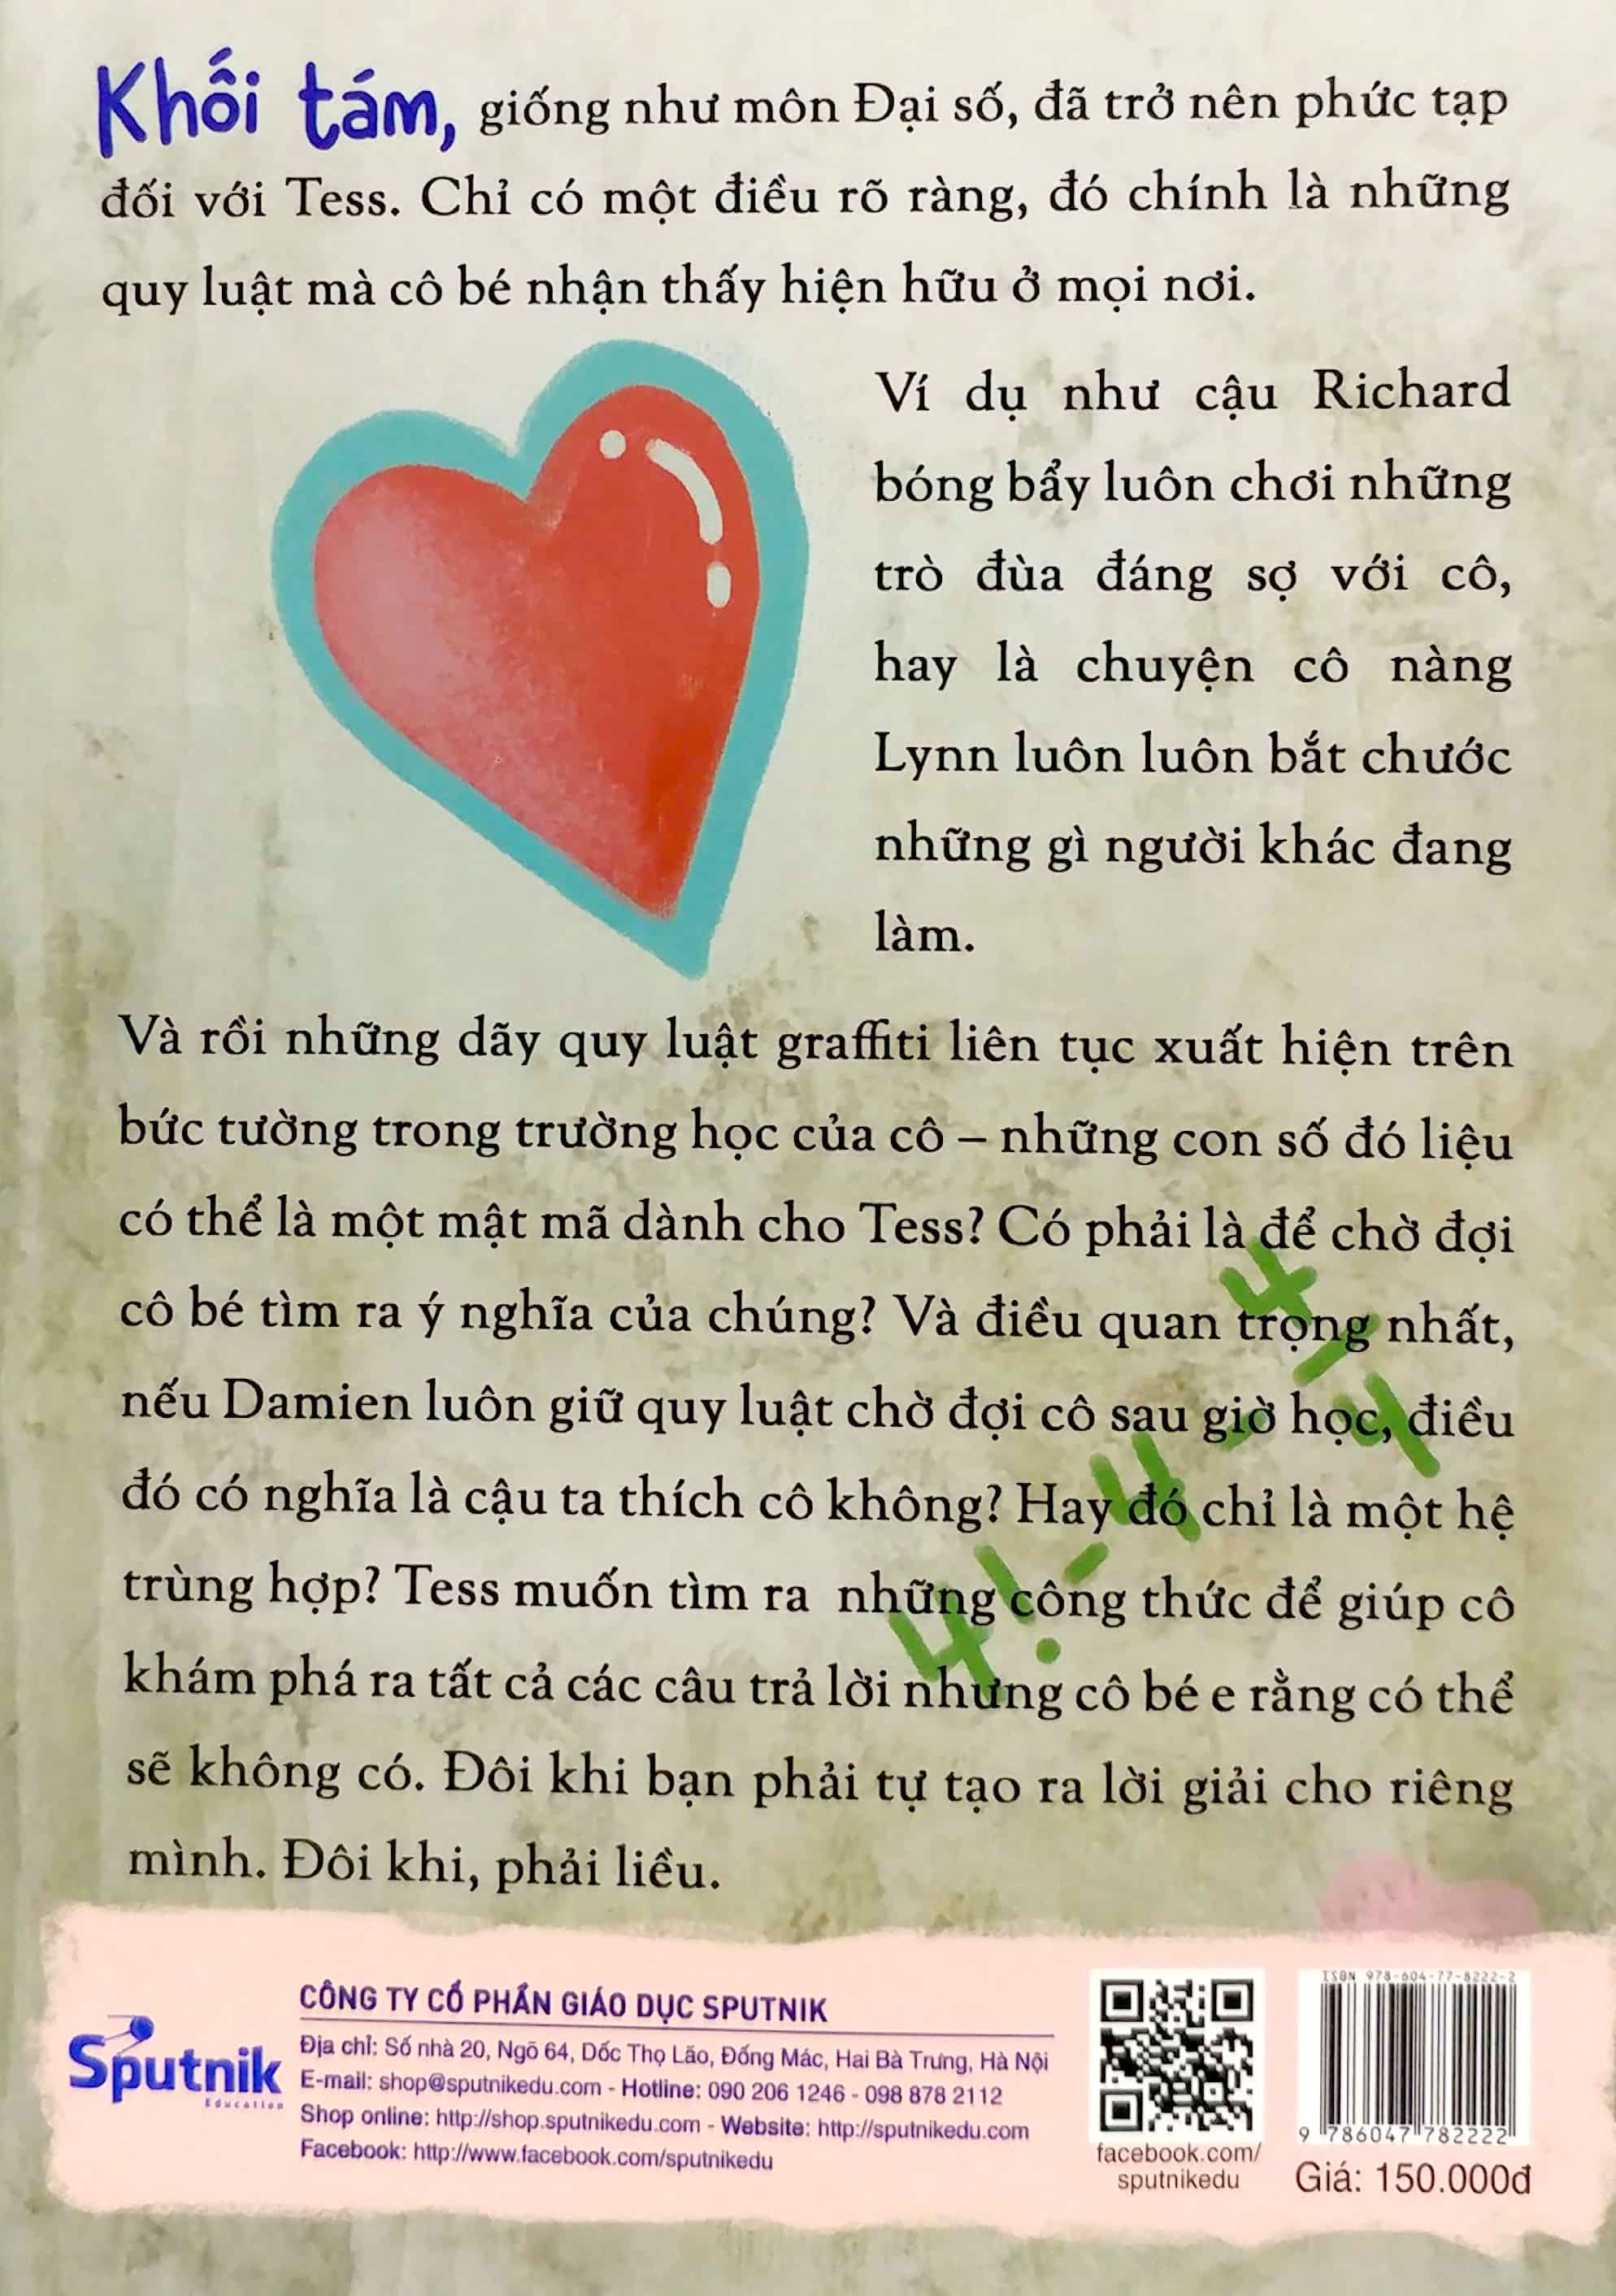 Khối tám, giống như môn Đại số, đã trở nên phức tạp
đối với Tess. Chỉ có một điều rõ ràng, đó chính là những
quy luật mà cô bé nhận thấy hiện hữu ở mọi nơi.
Ví dụ như cậu Richard
bóng bẩy luôn chơi những
trò đùa đáng sợ với cô,
hay là chuyện cô nàng
Lynn luôn luôn bắt chước
những gì người khác đang
làm.
Và rồi những dãy quy luật graffiti liên tục xuất hiện trên
bức tường trong trường học của cô – những con số đó liệu
có thể là một mật mã dành cho Tess? Có phải là để chờ đợi
cô bé tìm ra ý nghĩa của chúng? Và điều quan trọng nhất,
nếu Damien luôn giữ quy luật chờ đợi cô sau giờ học, điều
đó có nghĩa là cậu ta thích cô không? Hay đó chỉ là một hệ
trùng hợp? Tess muốn tìm ra những công thức để giúp cô
khám phá ra tất cả các câu trả lời nhưng cô bé e rằng có thể
sẽ không có. Đôi khi bạn phải tự tạo ra lời giải cho riêng
mình. Đôi khi, phải liều.
Sputnik
Education
CÔNG TY CỔ PHẦN GIÁO DỤC SPUTNIK
Địa chỉ: Số nhà 20, Ngõ 64, Dốc Thọ Lão, Đống Mác, Hai Bà Trưng, Hà Nội
E-mail: shop@sputnikedu.com - Hotline: 090 206 1246 - 098 878 2112
Shop online: http://shop.sputnikedu.com - Website: http://sputnikedu.com
Facebook: http://www.facebook.com/sputnikedu
facebook.com/
sputnikedu
ISBN 978-604-77-8222-2
9 786047 782222
Giá: 150.000đ